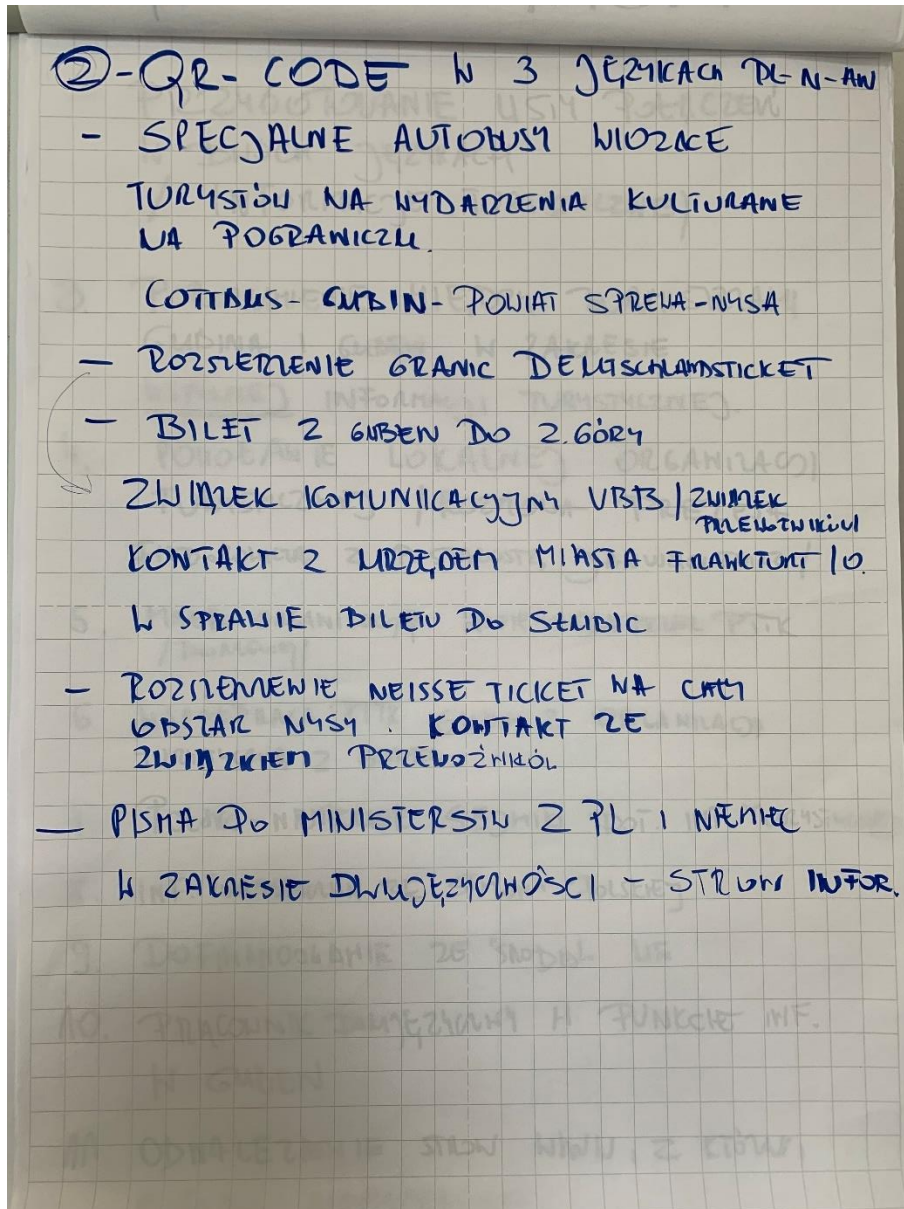 ② - QR - CODE W 3 JĘZYKACH PL-N-AN
- SPECJALNE AUTOBUSY WIOZĄCE
TURYSTÓW NA WYDARZENIA KULTURANE
NA POGRANICZU.
COTTBUS - GUBIN - POWIAT SPREWA-NYSA
- ROZSZERZENIE GRANIC DEUTSCHLANDSTICKET
- BILET Z GUBEN DO Z. GÓRY
ZWIĄZEK KOMUNIKACYJNY VBB / ZWIĄZEK
PRZEWOŹNIKÓW
KONTAKT Z URZĘDEM MIASTA FRANKFURT / O.
W SPRAWIE BILETU DO SŁUBIC
- ROZSZERZENIE NEISSE TICKET NA CAŁY
OBSZAR NYSY. KONTAKT ZE
ZWIĄZKIEM PRZEWOŹNIKÓW
- PISMA DO MINISTERSTW Z PL I NIEMIEC
W ZAKRESIE DWUJĘZYCZNOŚCI - STRON INFOR.